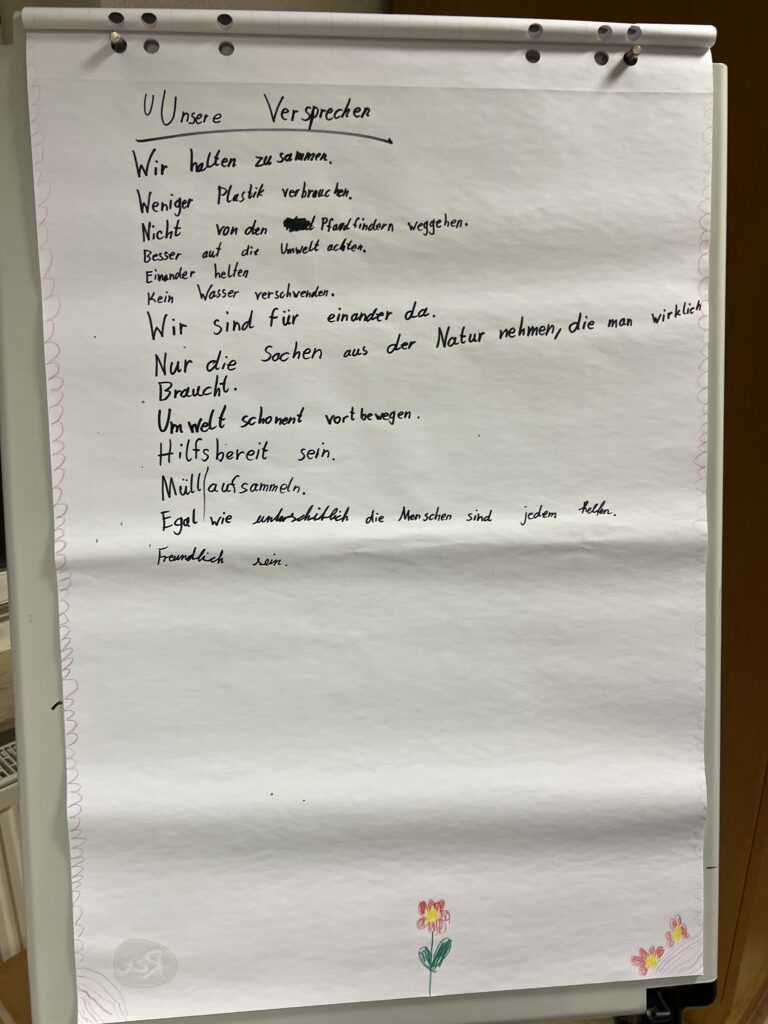 U Unsere Versprechen
Wir halten zusammen.
Weniger Plastik verbrauchen.
Nicht von den Pfandfindern weggehen.
Besser auf die Umwelt achten.
Einander helfen
Kein Wasser verschwenden.
Wir sind für einander da.
Nur die Sachen aus der Natur nehmen, die man wirklich
Braucht.
Umwelt schonent vortbewegen.
Hilfsbereit sein.
Müll/aufsammeln.
Egal wie unterschitlich die Menschen sind jedem helfen.
Freundlich sein.